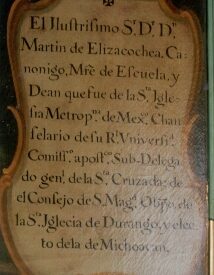 El Ilustrisimo S.r D.r D.n
Martin de Elizacochea, Ca-
nonigo, Mrẽ de Escuela, y
Dean que fue de la S.ta Igle-
sia Metrop.na de Mex.co Chan-
selario de su R.l Vniversi.d
Comiss.o apost.co Sub-Delega
do gen.l de la S.ta Cruzada; de
el Consejo de S. Mag.d Obispo de
la S.ta Iglecia de Durango, y elec-
to dela de Michoacan.